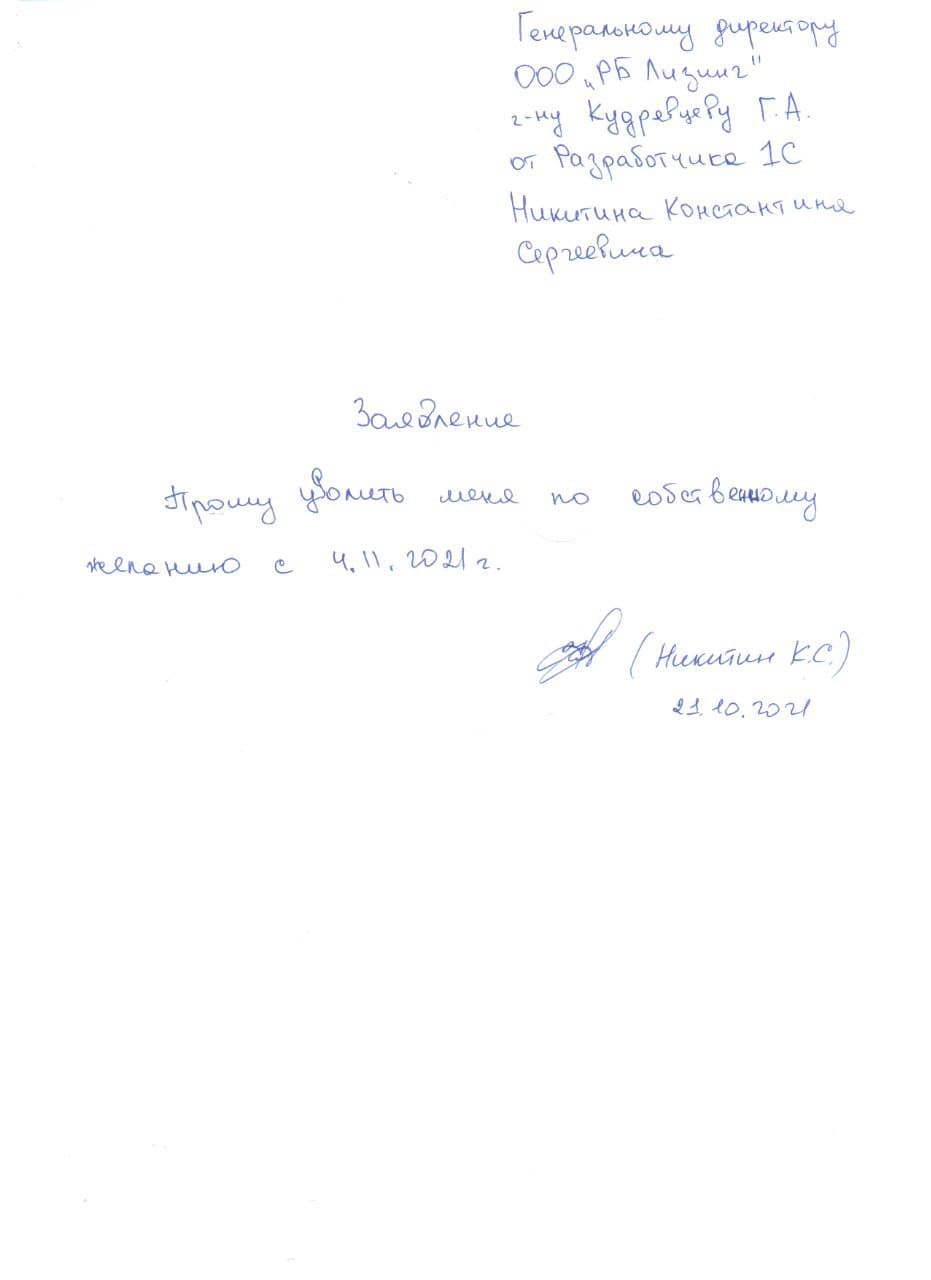 Генеральному директору
ООО „РБ Лизинг"
г-ну Кудревцеву Г.А.
от Разработчика 1С
Никитина Константина
Сергеевича
Заявление
Прошу уволить меня по собственному
желанию с 4.11.2021 г.
(Никитин К.С.)
21.10.2021